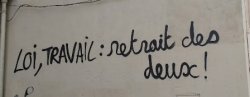 LOi, TRAVAiL : retrait des
deux !